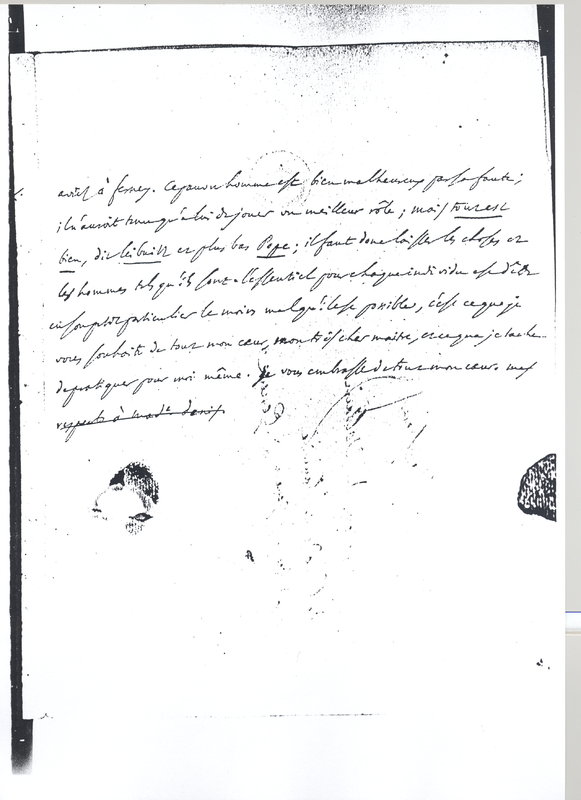 avril à ferney. Ce pauvre homme est bien malheureux par sa faute;
il n'auroit tenu qu'à lui de jouer un meilleur rôle; mais tout est
bien, dit leibnitz et plus bas Pope; il faut donc laisser les choses et
les hommes tels qu'ils sont. l'essentiel pour chaque individu est d'être
en son petit particulier le moins mal qu'il est possible, c'est ce que je
vous souhaite de tout mon cœur, mon très cher maitre, et ce que je tache
de pratiquer pour moi même. Je vous embrasse de tout mon cœur. mes
respects à made. denis